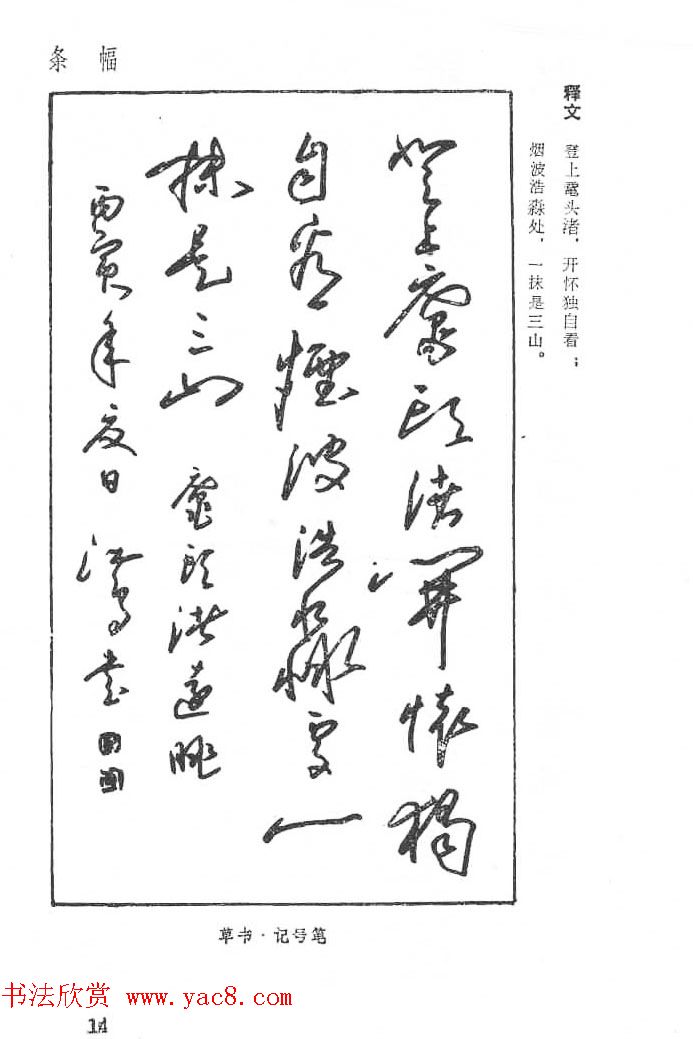 条幅
释文
登上鼋头渚，开怀独自看；
烟波浩淼处，一抹是三山。
登上鼋头渚開懷獨
自看煙波浩淼處一
抹是三山 鼋头渚遠眺
丙寅年夏日 書
草书·记号笔
书法欣赏 www.yac8.com
14